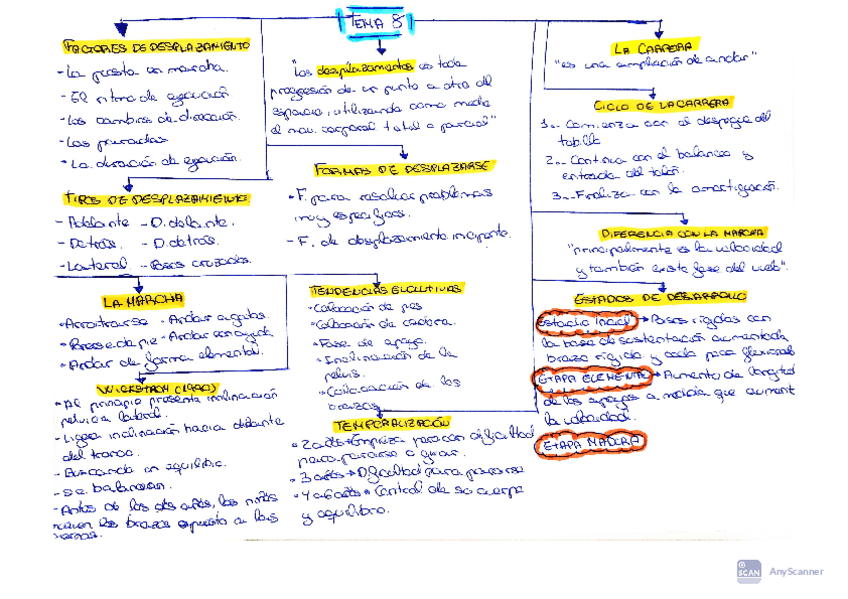 TEMA 8
FACTORES DE DESPLAZAMIENTO
- La puesta en marcha.
- El ritmo de ejecución
- Los cambios de dirección.
- Las paradas
- La duración de ejecución.
TIPOS DE DESPLAZAMIENTO
- Adelante - D. delante.
- Detrás. - D. detrás.
- Lateral - Pasos cruzados.
LA MARCHA
- Arrastrarse - Andar a gatas.
- Ponerse de pie - Andar con ayuda
- Andar de forma elemental.
WICKSTROM (1990)
- Al principio presenta inclinación
pelvica lateral.
- Ligera inclinación hacia delante
del tronco.
- Buscando un equilibrio.
- Se balancean.
- Antes de los dos años, los niños
mueven los brazos opuesto a las
piernas.
"Los desplazamientos es toda
progresión de un punto a otro del
espacio, utilizando como medio
el mov. corporal total o parcial"
FORMAS DE DESPLAZARSE
- F. para resolver problemas
muy específicos.
- F. de desplazamiento incipiente.
TENDENCIAS EVOLUTIVAS
- Colocación de pies
- Colocación de cadera.
- Fase de apoyo.
- Inclinación de la
pelvis.
- Colocación de los
brazos
TEMPORALIZACIÓN
- 2 años → Empieza para con dificultad
para pararse o girar.
- 3 años → Dificultad para pararse
- 4 a 6 años → Control de su cuerpo
y equilibro.
LA CARRERA
"es una ampliación de andar"
CICLO DE LA CARRERA
1.- Comienza con el despegue del
tobillo
2.- Continua con el balanceo y
entrada del talón.
3.- Finaliza con la amortiguación.
DIFERENCIA CON LA MARCHA
"principalmente es la velocidad
y también existe fase del vuelo".
ESTADOS DE DESARROLLO
Estadio Inicial → Pasos rígidos con
la base de sustentación aumentada,
brazo rígido y codo poco flexionado
ETAPA ELEMENTAL → Aumento de longitud
de los apoyos a medida que aument
la velocidad.
ETAPA MADURA
SCAN AnyScanner